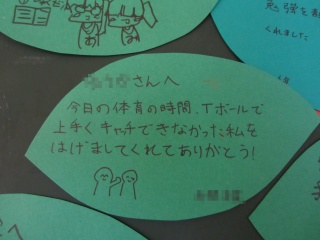 さんへ
今日の体育の時間、Tボールで
上手くキャチできなかった私を
はげましてくれてありがとう!
勉強を
くれました
へ